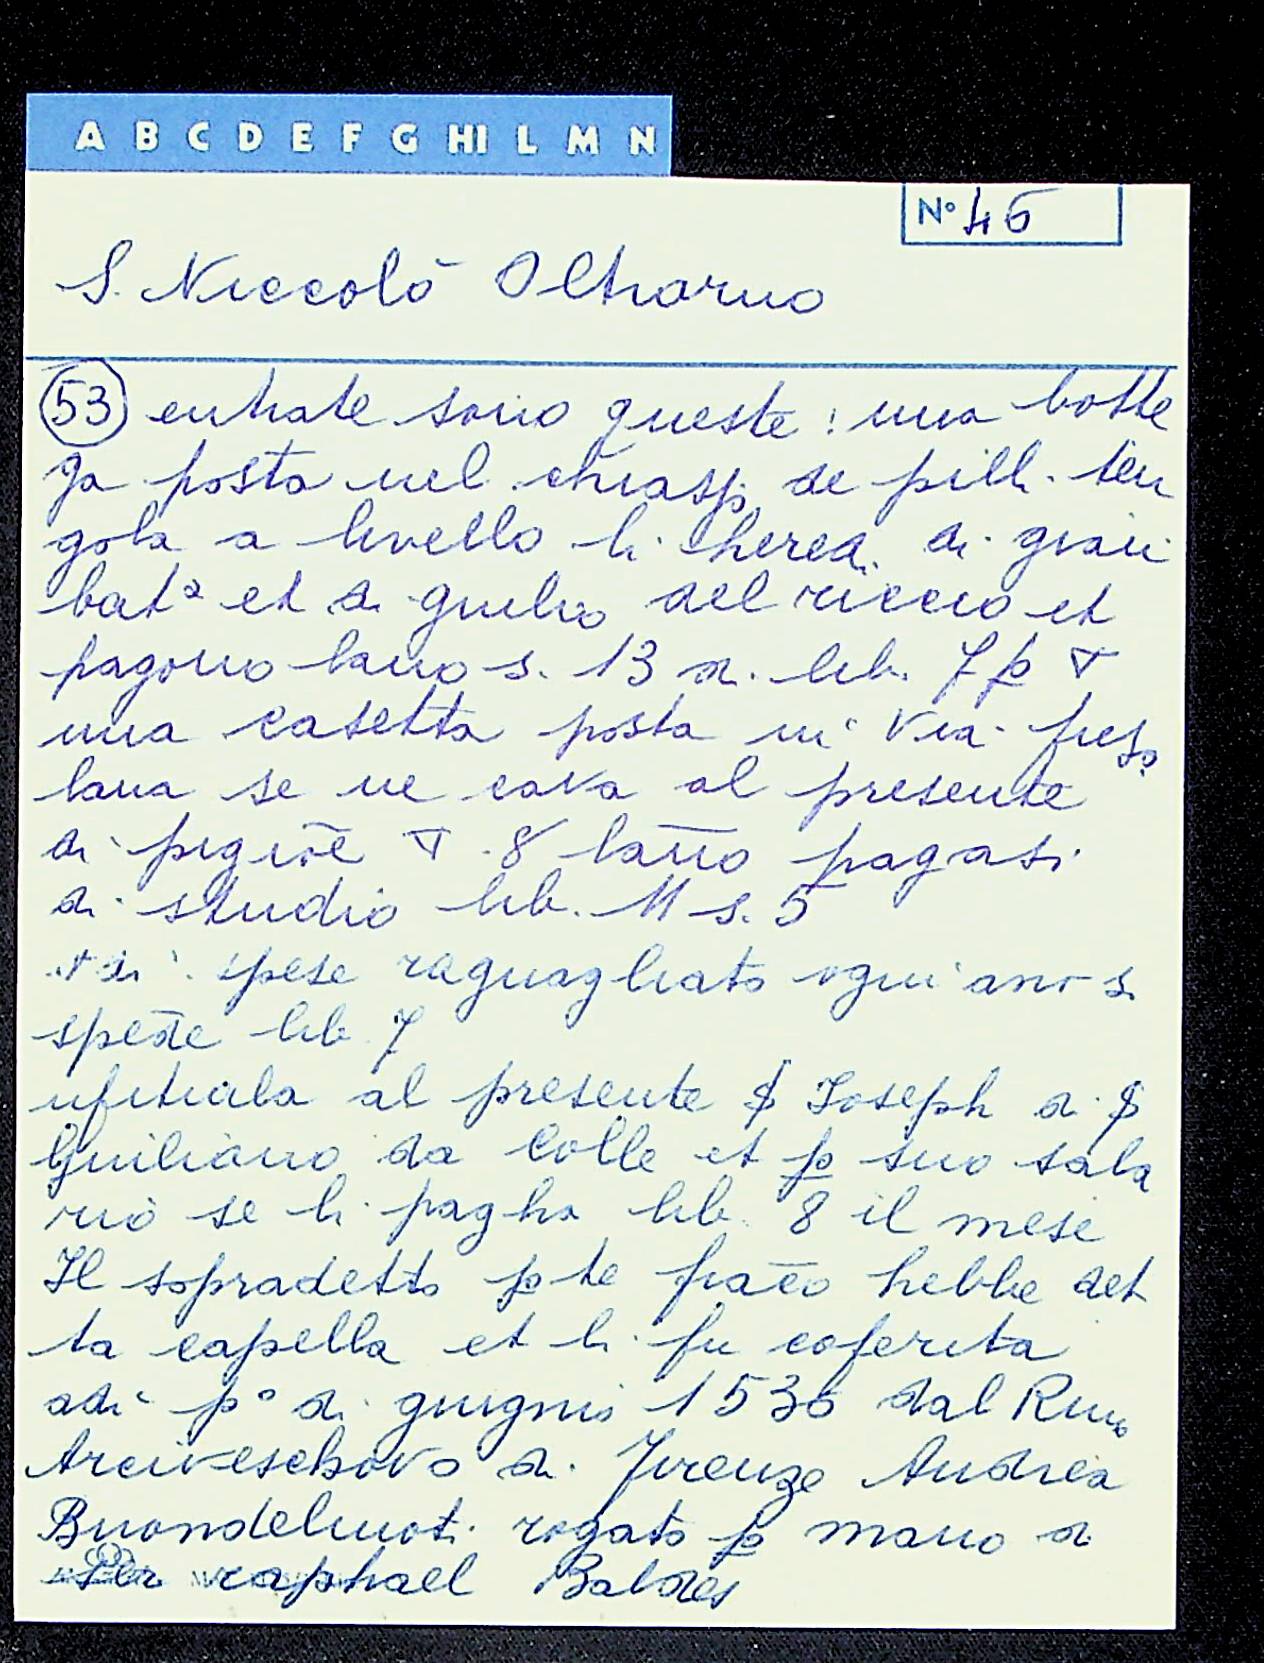 A B C D E F G HI L M N
N° 46
S. Niccolò Oltrarno
(53) entrate sono queste: una botte
ga posta nel chiass. de pilli. ten
gola a livello li hered. di gian
bat.a et di giulio del riccio et
pagono lano s. 13 d. lib. 7 p
una casetta posta in via
lana se ne cava al presente
di pigiōe ∇ 8 lāno pagasi
di studio lib. 11 s. 5
spese raguagliato ogni ano si
spēde lib. 7
ufitiala al presente $ Joseph di $
Giuliano da Colle et p suo sala
rio se li pagha lib. 8 il mese
Il sopradetto p te frācō hebbe det
ta capella et li fu coferita
adi p° di giugnio 1536 dal Rmo
Arciveschovo di Firenze Andrea
Buondelmoti rogato p mano di
ser raphael Baldes